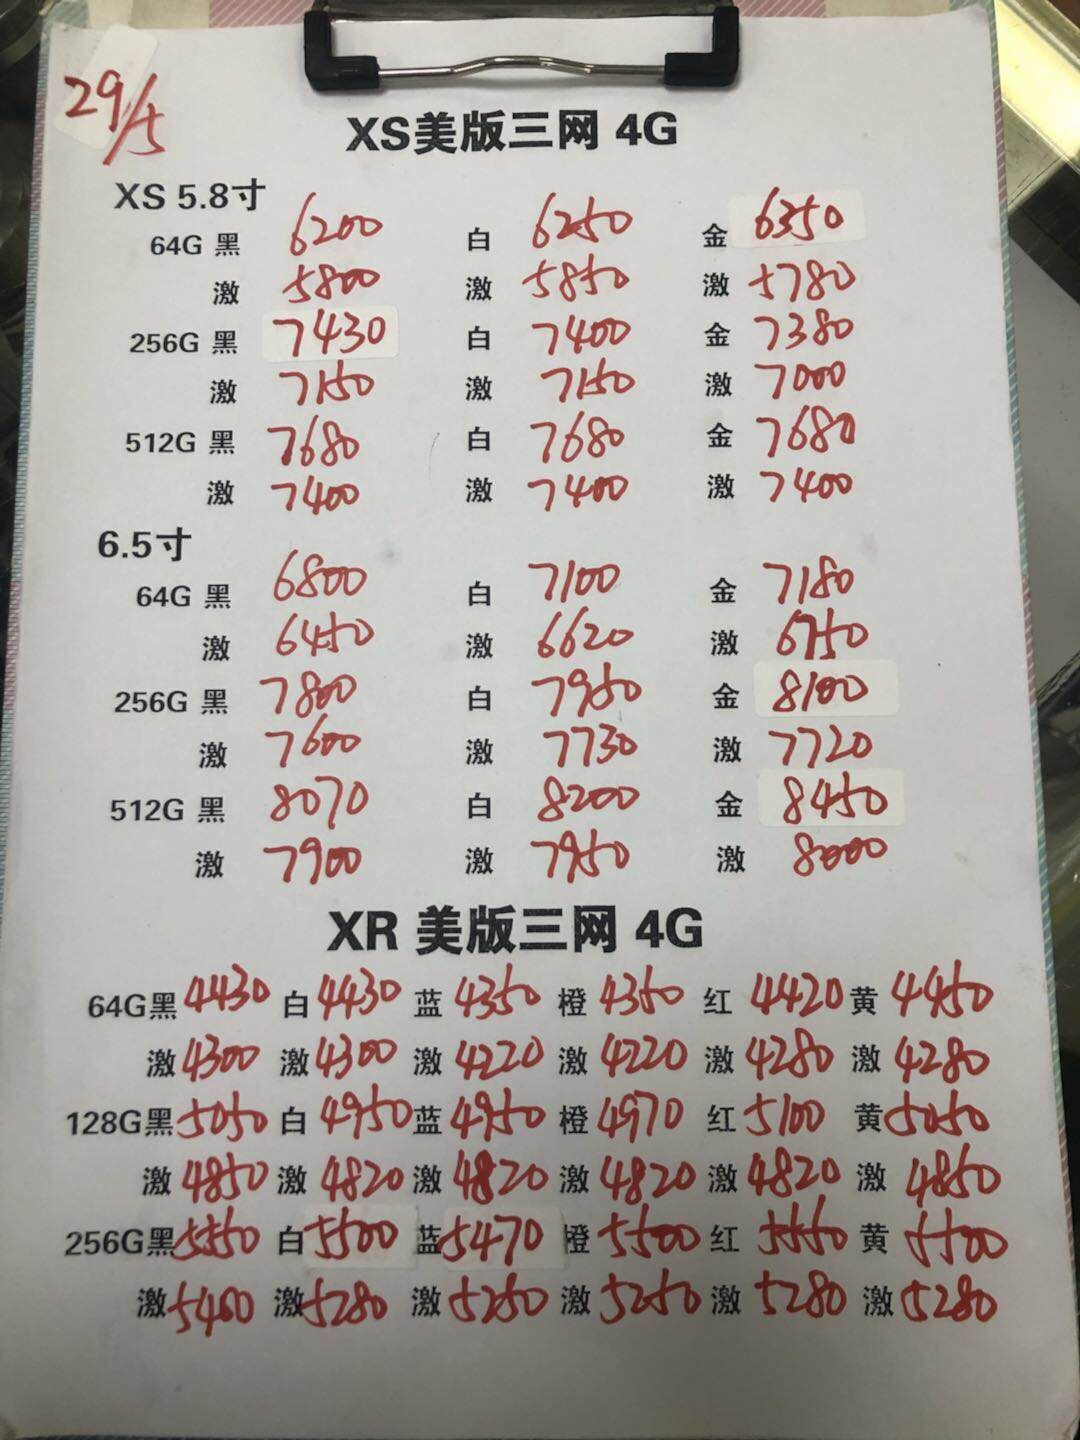 29/5
XS美版三网 4G
XS 5.8寸
64G 黑 6200 白 6250 金 6350
激 5800 激 5850 激 5780
256G 黑 7430 白 7400 金 7380
激 7150 激 7150 激 7000
512G 黑 7680 白 7680 金 7680
激 7400 激 7400 激 7400
6.5寸
64G 黑 6800 白 7100 金 7180
激 6450 激 6620 激 6750
256G 黑 7800 白 7950 金 8100
激 7600 激 7730 激 7720
512G 黑 8070 白 8200 金 8450
激 7900 激 7950 激 8000
XR 美版三网 4G
64G黑 4430 白 4430 蓝 4350 橙 4350 红 4420 黄 4450
激 4300 激 4300 激 4220 激 4220 激 4280 激 4280
128G黑 5050 白 4950 蓝 4950 橙 4970 红 5100 黄 5050
激 4850 激 4820 激 4820 激 4820 激 4820 激 4850
256G黑 5550 白 5500 蓝 5470 橙 5500 红 5550 黄 5500
激 5400 激 5280 激 5250 激 5250 激 5280 激 5280